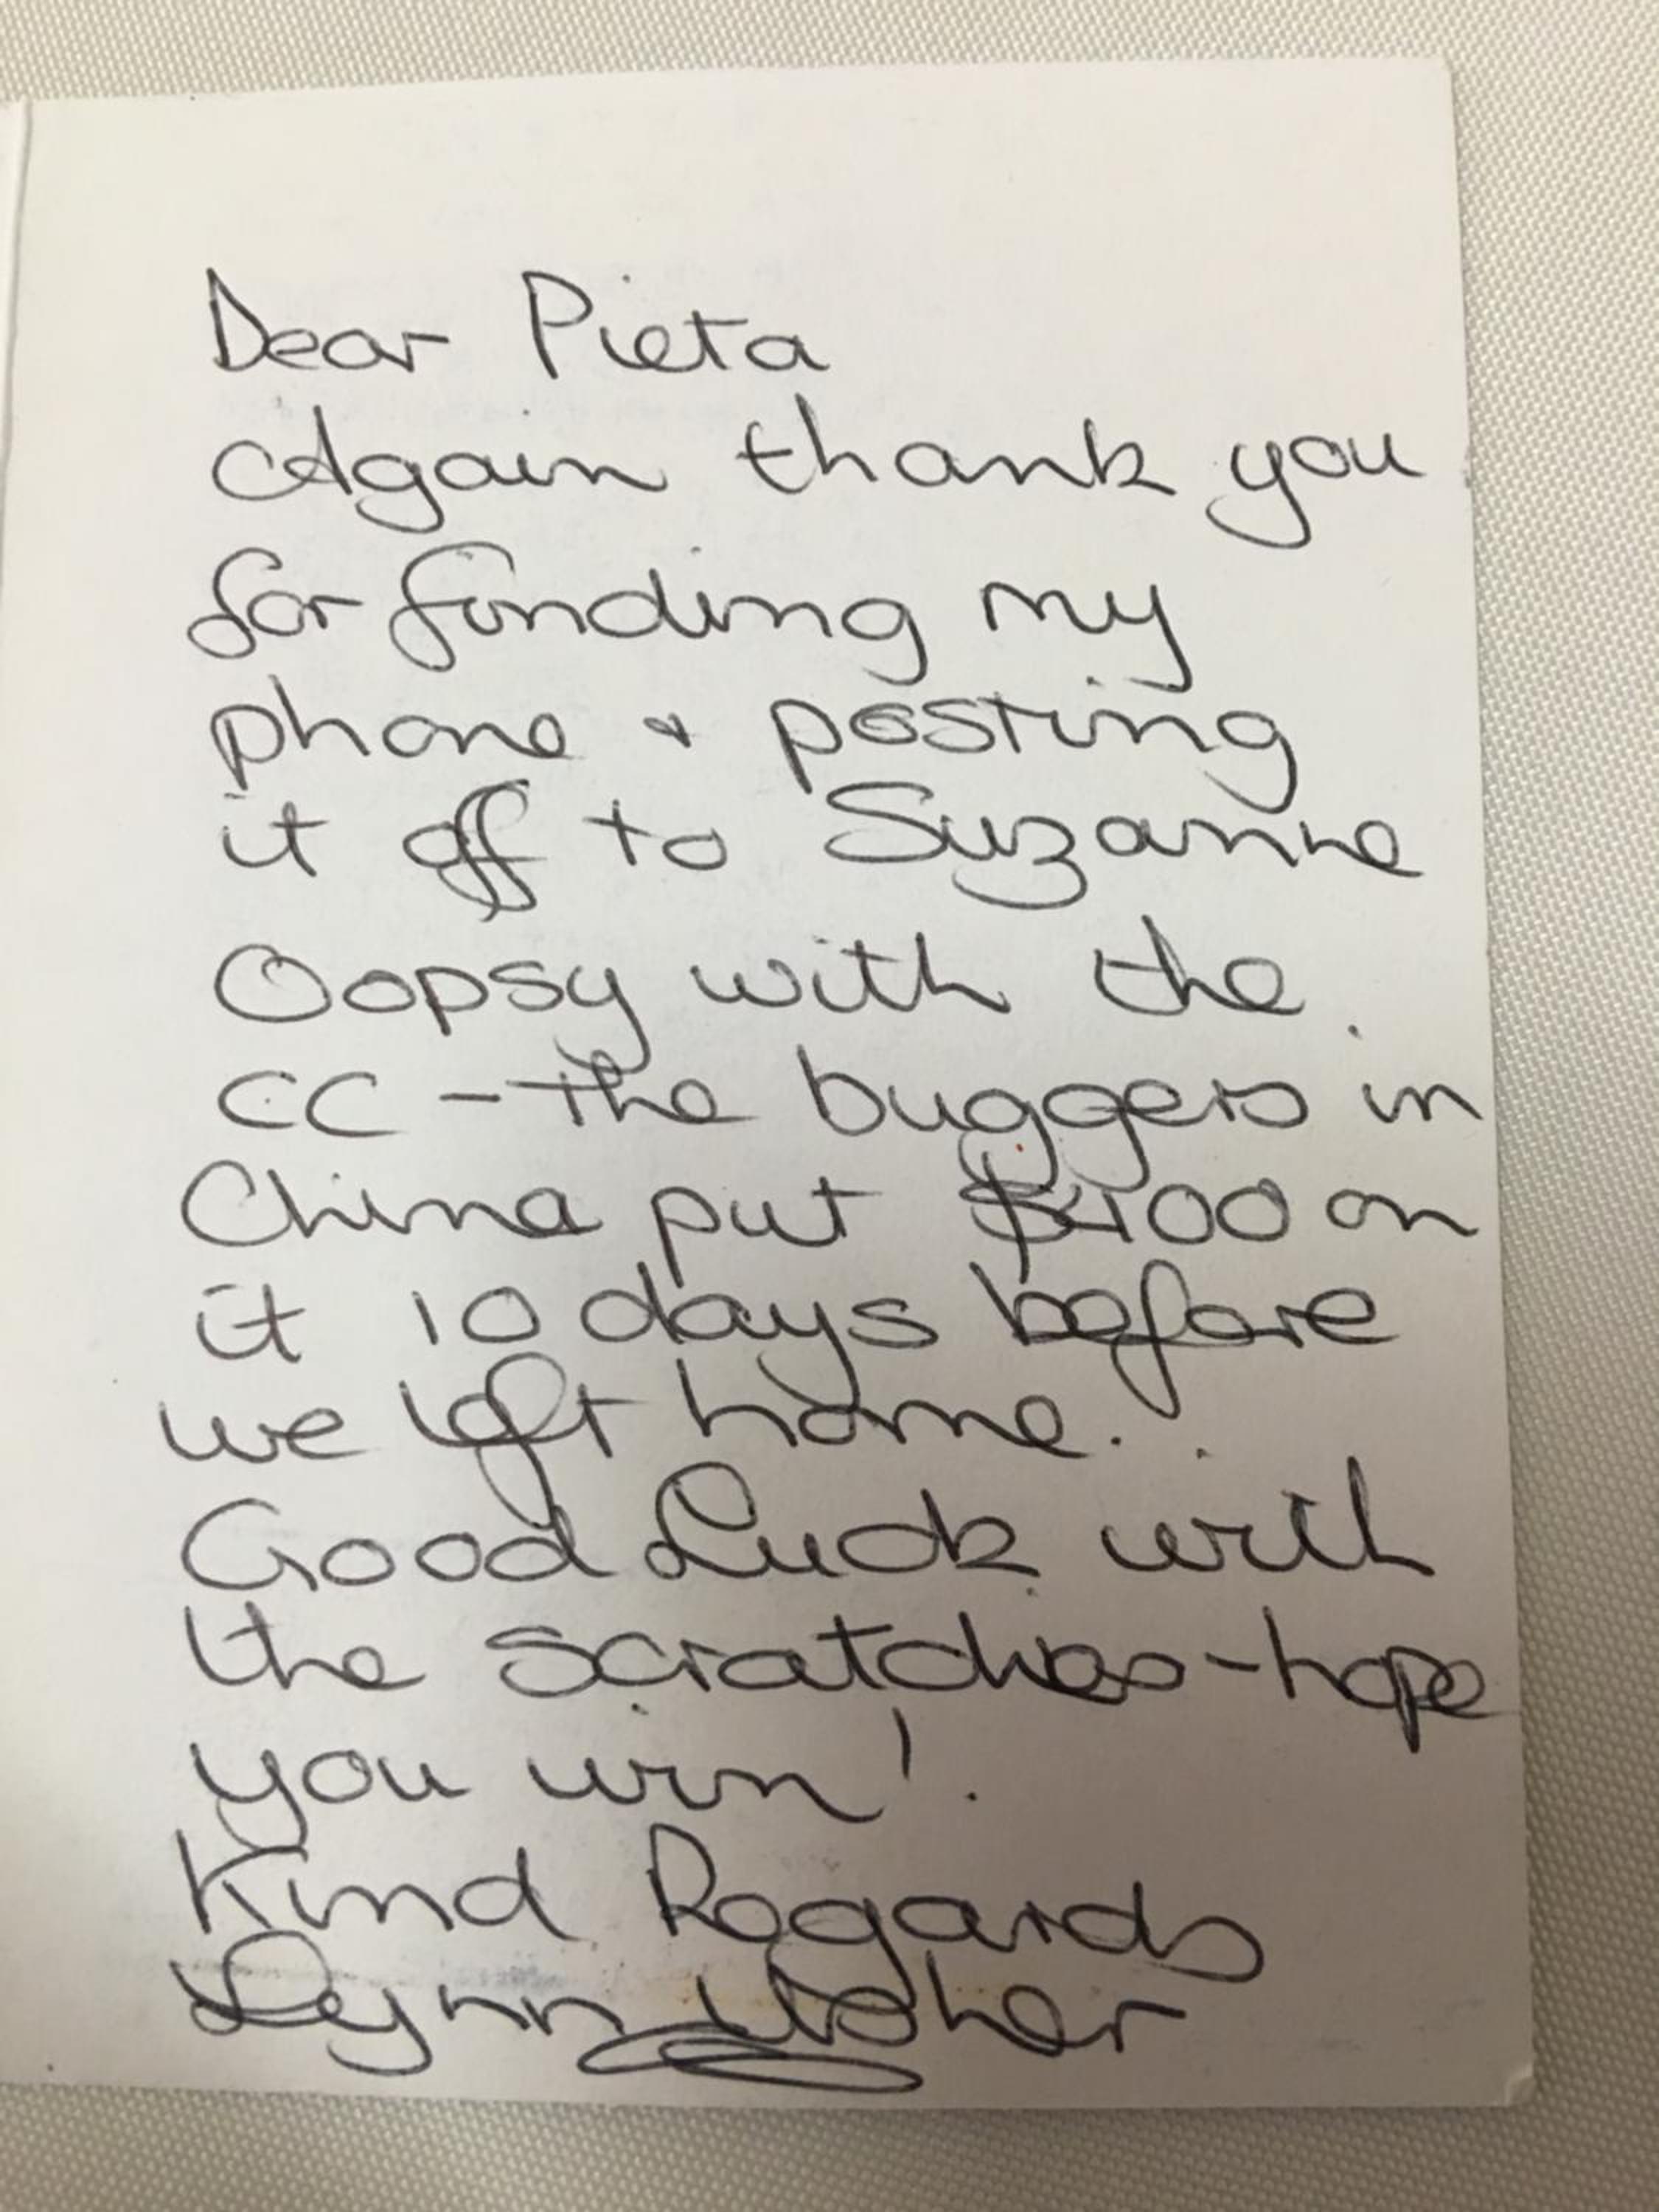 Dear Pieta
Again thank you
for funding my
phone & posting
it off to Suzanne
Oopsy with the
CC - the buggers in
China put $400 on
it 10 days before
we left home.
Good Luck with
the scratches - hope
you win!
Kind Regards
Lynn Usher